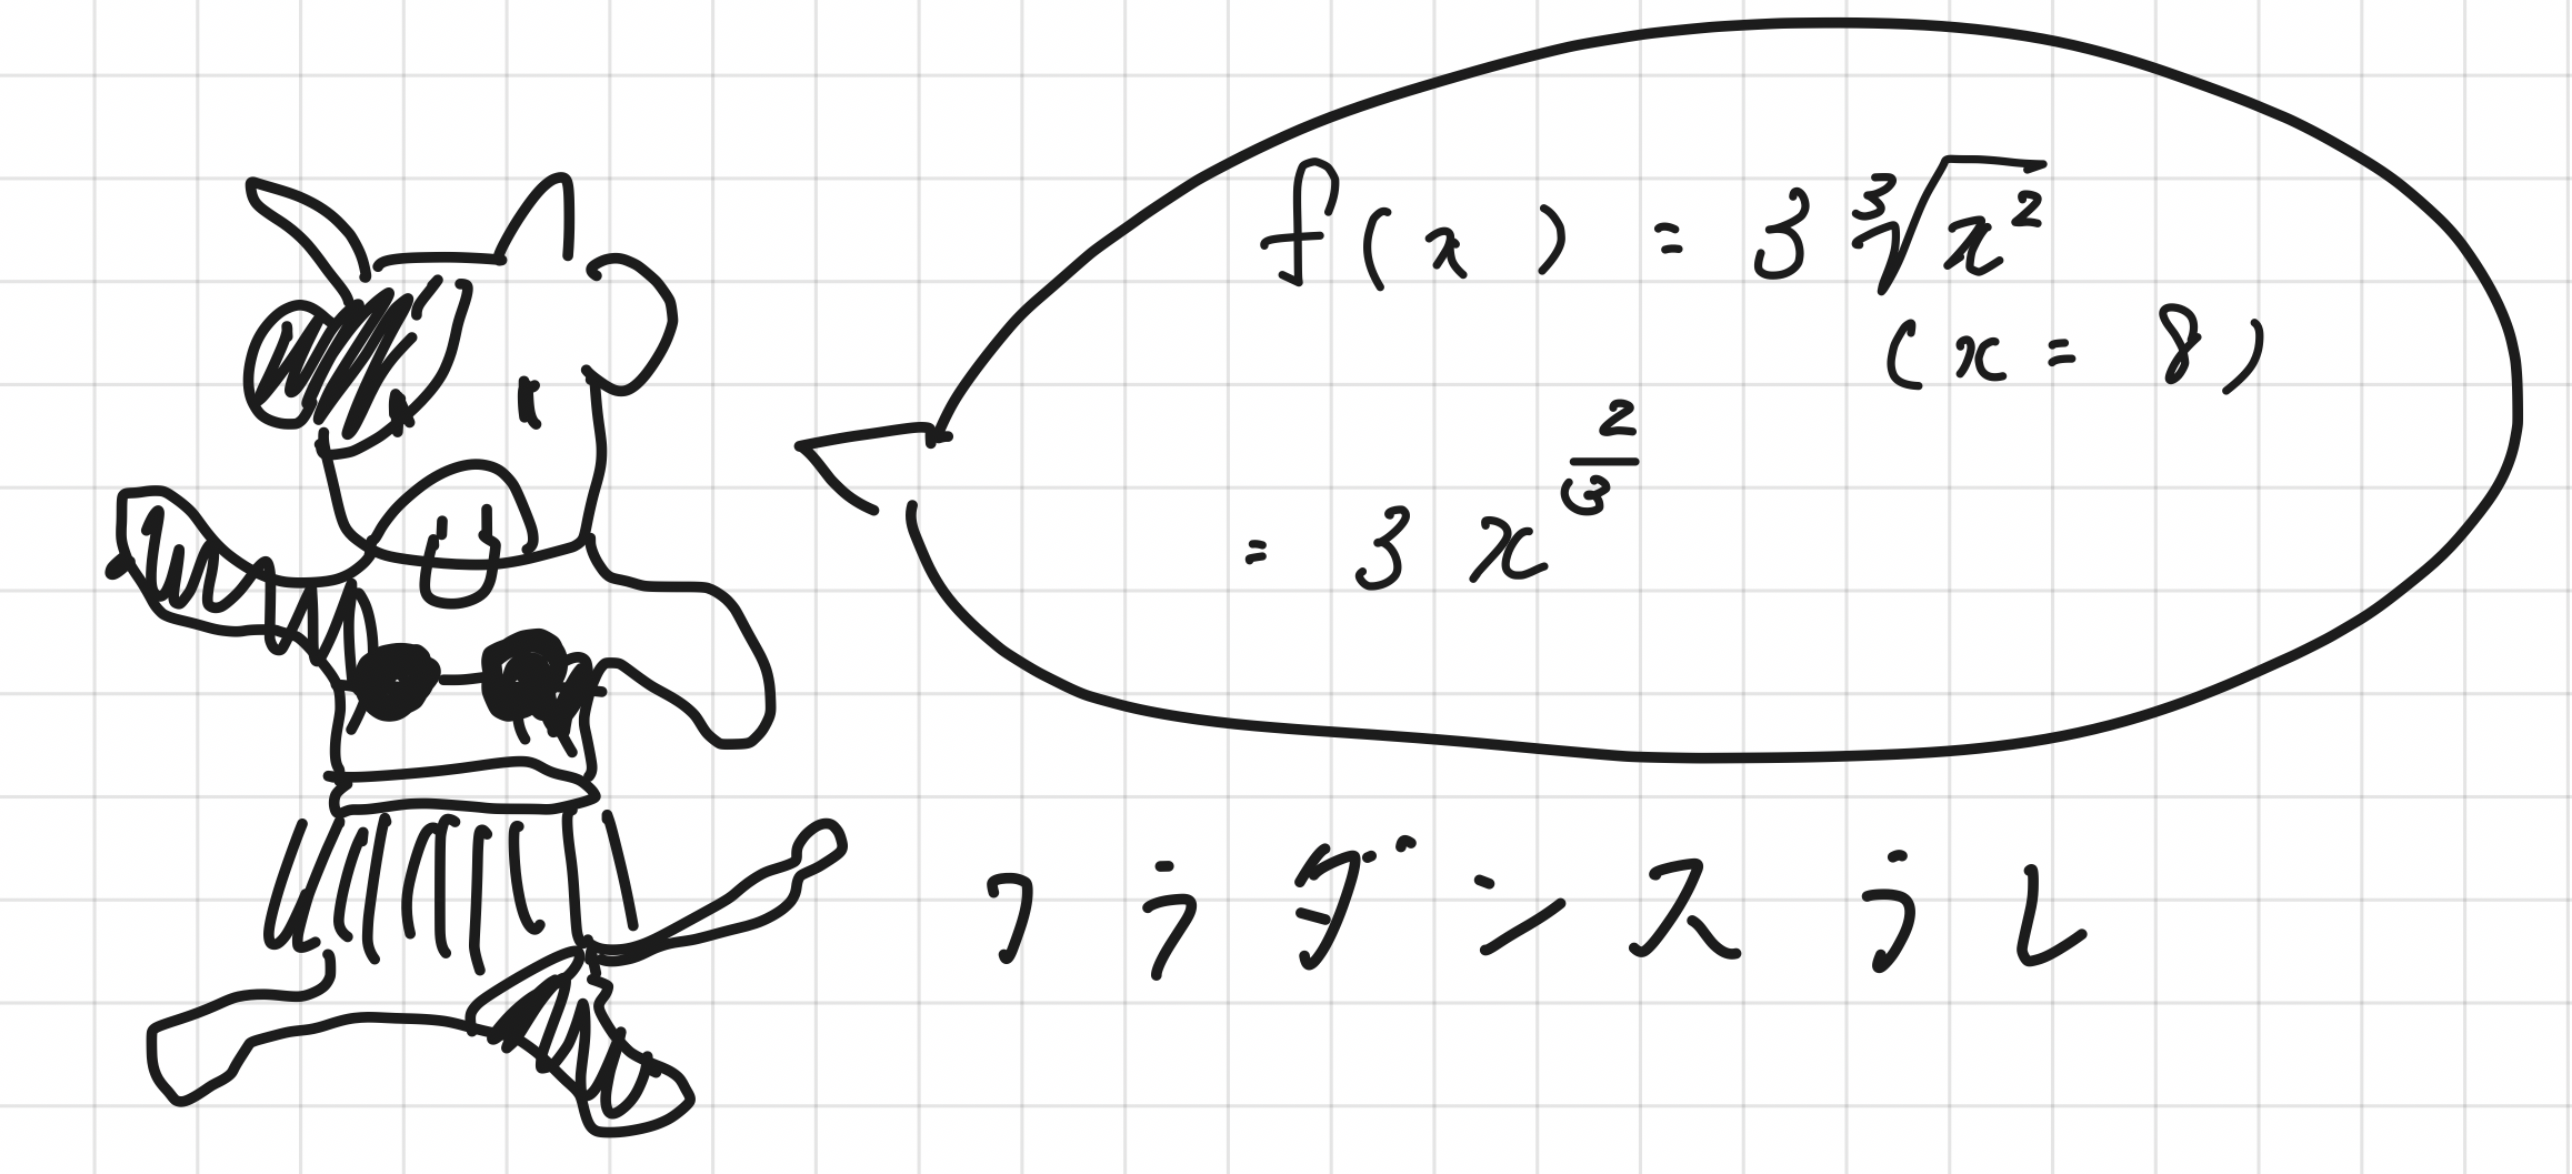 f(x) = 3∛x²
(x = 8)
= 3x^(2/3)
フラダンスうし